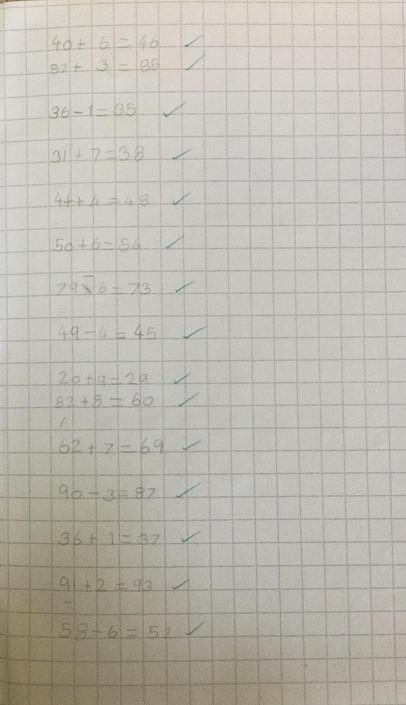 40 + 6 = 46 ✓
82 + 3 = 85 ✓
36 - 1 = 35 ✓
31 + 7 = 38 ✓
44 + 4 = 48 ✓
50 + 6 = 56 ✓
79 - 6 = 73 ✓
49 - 4 = 45 ✓
20 + 9 = 29 ✓
52 + 8 = 60 ✓
62 + 7 = 69 ✓
90 - 3 = 87 ✓
36 + 1 = 37 ✓
91 + 2 = 93 ✓
58 - 6 = 52 ✓